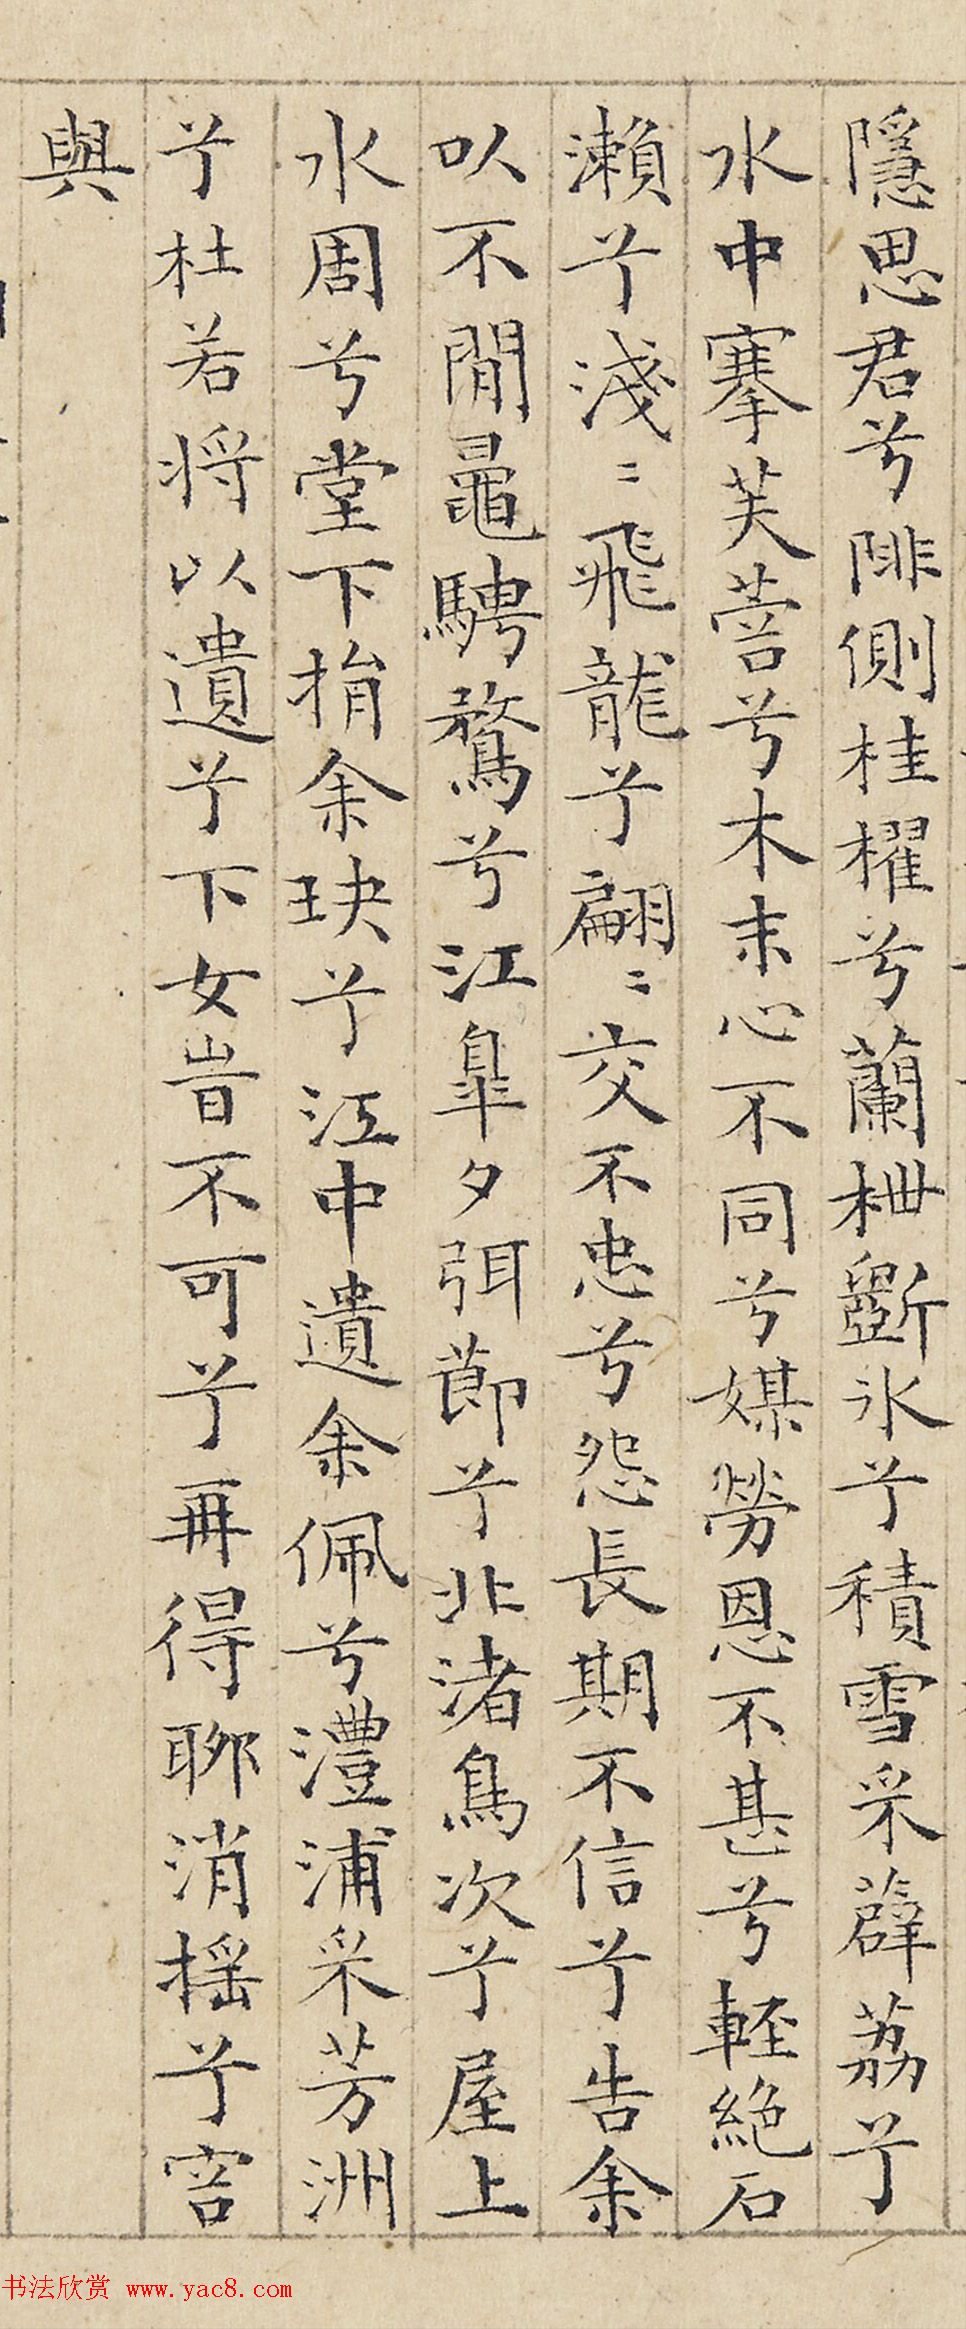 隱思君兮陫側桂櫂兮蘭枻斵冰兮積雪采薜荔兮
水中搴芙蓉兮木末心不同兮媒勞恩不甚兮輕絕石
瀨兮淺〻飛龍兮翩〻交不忠兮怨長期不信兮告余
以不閒鼂騁騖兮江皋夕弭節兮北渚鳥次兮屋上
水周兮堂下捐余玦兮江中遺余佩兮澧浦采芳洲
兮杜若將以遺兮下女旹不可兮再得聊消搖兮容
與
书法欣赏 www.yac8.com